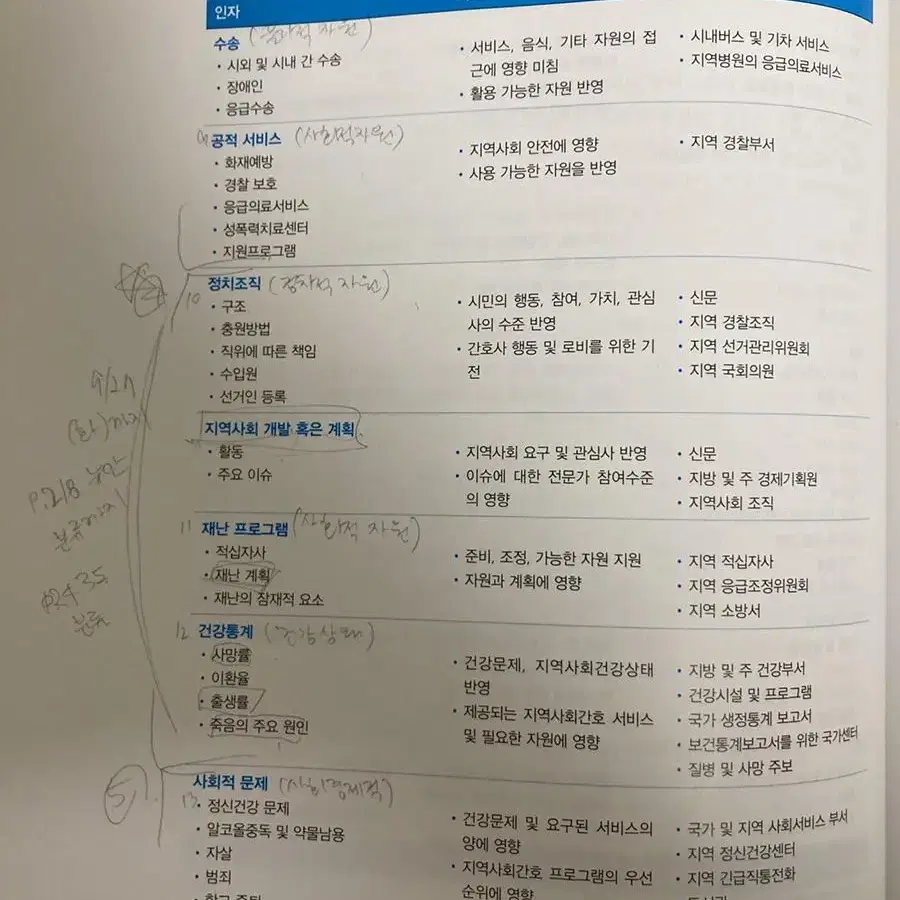 인자
수송 (물리적 자원)
• 시외 및 시내 간 수송
• 장애인
• 응급수송
• 서비스, 음식, 기타 자원의 접
근에 영향 미침
• 활용 가능한 자원 반영
• 시내버스 및 기차 서비스
• 지역병원의 응급의료서비스
공적 서비스 (사회적자원)
• 화재예방
• 경찰 보호
• 응급의료서비스
• 성폭력치료센터
• 지원프로그램
• 지역사회 안전에 영향
• 사용 가능한 자원을 반영
• 지역 경찰부서
10 정치조직 (정치적 자원)
• 구조
• 충원방법
• 직위에 따른 책임
• 수입원
• 선거인 등록
• 시민의 행동, 참여, 가치, 관심
사의 수준 반영
• 간호사 행동 및 로비를 위한 기
전
• 신문
• 지역 경찰조직
• 지역 선거관리위원회
• 지역 국회의원
지역사회 개발 혹은 계획
• 활동
• 주요 이슈
• 지역사회 요구 및 관심사 반영
• 이슈에 대한 전문가 참여수준
의 영향
• 신문
• 지방 및 주 경제기획원
• 지역사회 조직
11 재난 프로그램 (사회적 자원)
• 적십자사
• 재난 계획
• 재난의 잠재적 요소
• 준비, 조정, 가능한 자원 지원
• 자원과 계획에 영향
• 지역 적십자사
• 지역 응급조정위원회
• 지역 소방서
12 건강통계 (건강상태)
• 사망률
• 이환율
• 출생률
• 죽음의 주요 원인
• 건강문제, 지역사회건강상태
반영
• 제공되는 지역사회간호 서비스
및 필요한 자원에 영향
• 지방 및 주 건강부서
• 건강시설 및 프로그램
• 국가 생정통계 보고서
• 보건통계보고서를 위한 국가센터
• 질병 및 사망 주보
13 사회적 문제 (사회경제적)
• 정신건강 문제
• 알코올중독 및 약물남용
• 자살
• 범죄
• 건강문제 및 요구된 서비스의
양에 영향
• 지역사회간호 프로그램의 우선
순위에 영향
• 국가 및 지역 사회서비스 부서
• 지역 정신건강센터
• 지역 긴급직통전화
(화)까지
P.218
분류까지